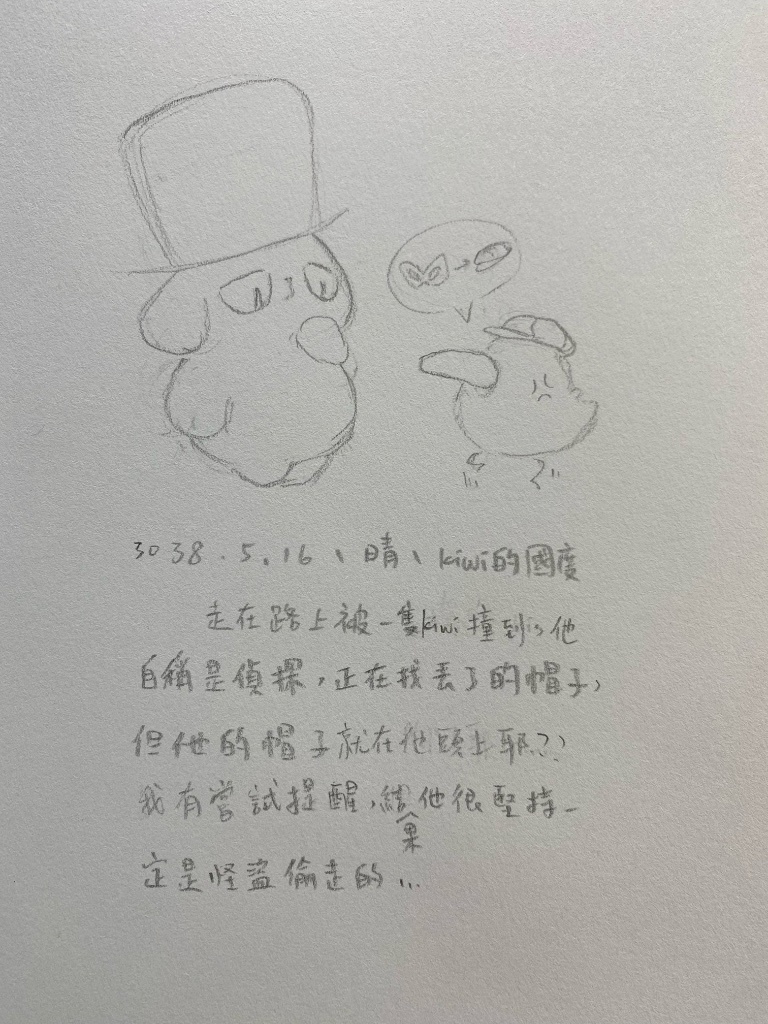 3038.5.16、晴、kiwi的國度
走在路上被一隻kiwi撞到、他
自稱是偵探,正在找丟了的帽子,
但他的帽子就在他頭上耶??
我有嘗試提醒,結果他很堅持一
定是怪盜偷走的...